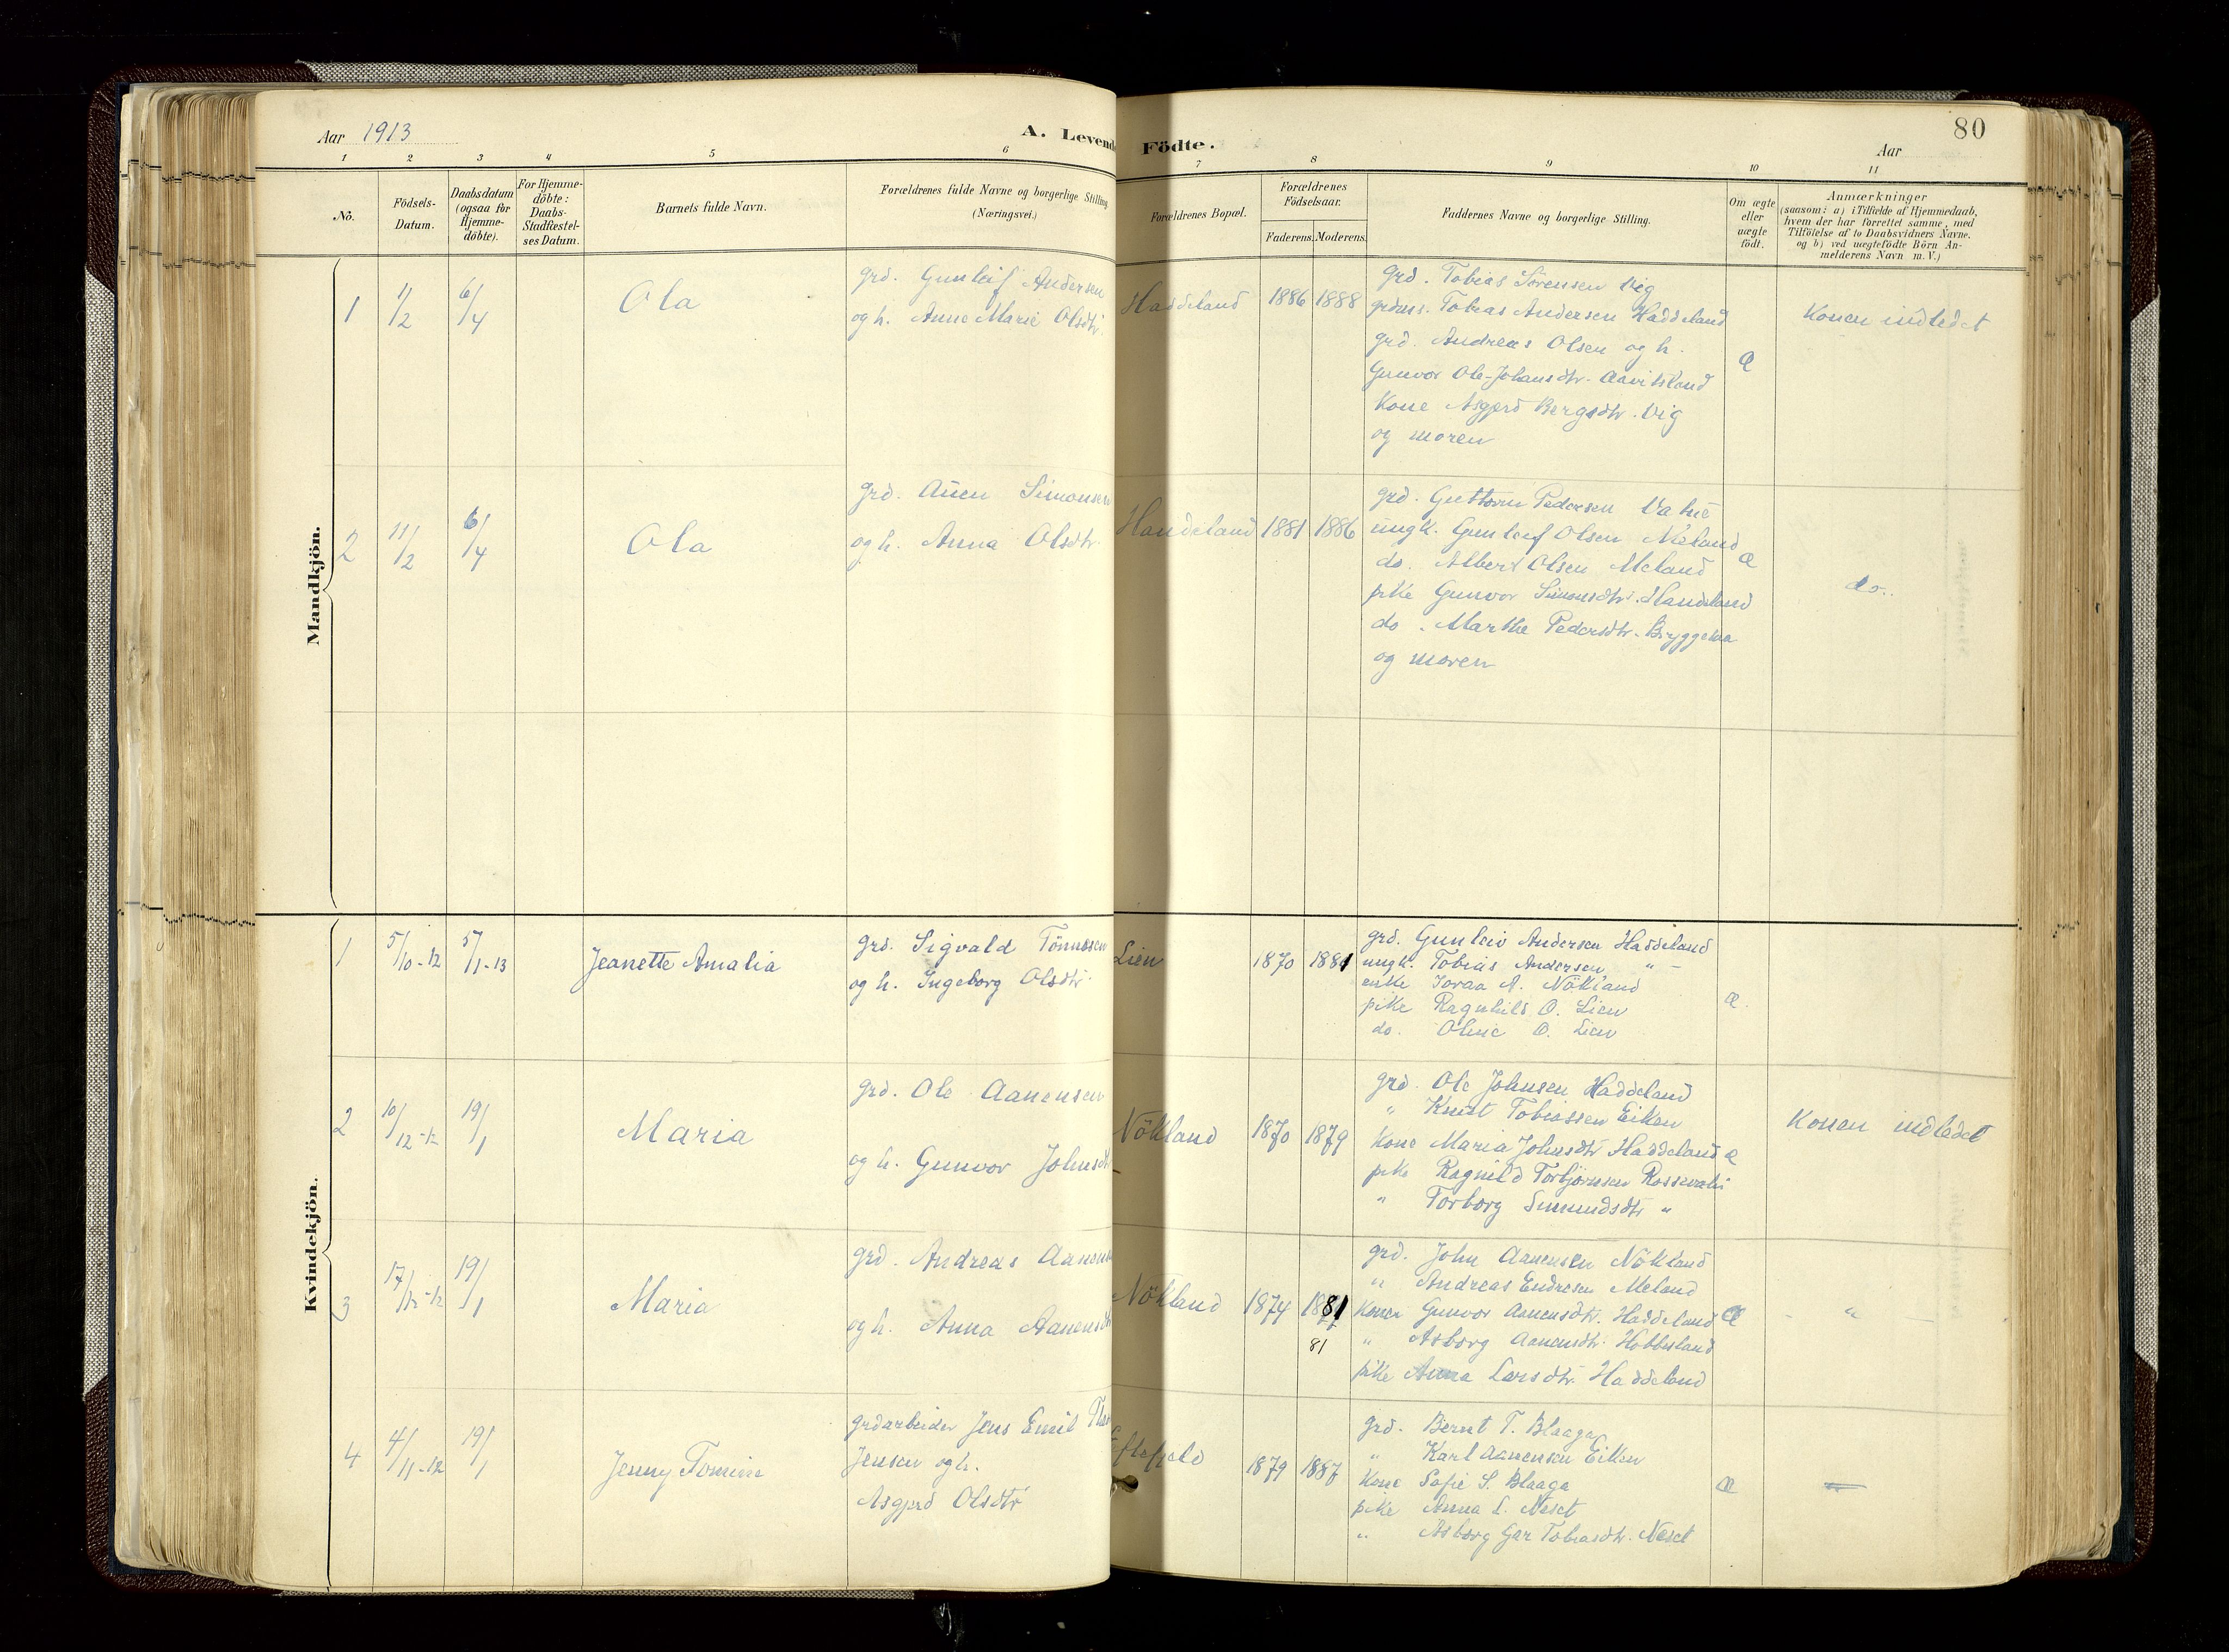 Aar 1913
A. Levende Födte.
80
Aar
1 2 3 4 5 6 7 8 9 10 11
No.
Födsels-Datum.
Daabsdatum (ogsaa for Hjemme-döbte).
For Hjemme-döbte: Daabs-Stadfæstel-ses Datum.
Barnets fulde Navn.
Forældrenes fulde Navne og borgerlige Stilling (Næringsvei.)
Forældrenes Bopæl.
Forældrenes Födselsaar.
Faderens. Moderens.
Faddernes Navne og borgerlige Stilling.
Om ægte eller uægte födt.
Anmærkninger
(saasom: a) i Tilfælde af Hjemmedaab,
hvem der har forrettet samme, med
Tilföielse af to Daabsvidners Navne.
og b) ved uægtefödte Börn An-
melderens Navn m.V.)
Mandkjön.
1 1/2 6/4 Ola
grd. Gunleif Andersen
og h. Anne Marie Olsdtr.
Haddeland 1886 1888
grd. Tobias Sörensen Vig
grdms. Tobias Andersen Haddeland
grd. Andreas Olsen og h.
Gunvor Ole-Johansdtr. Aavitsland
Kone Asgjerd Bergsdtr. Vig
og moren
æ
Konen indledet
2 11/2 6/4 Ola
grd. Anen Simonsen
og h. Anna Olsdtr.
Handeland 1881 1886
grd. Guttorm Pedersen Vatne
ungk. Gunleif Olsen Meland
do. Albert Olsen Meland
pike Gunvor Simonsdtr. Handeland
do. Marthe Pedersdtr. Bryggesaa
og moren
æ
do.
Kvindekjön.
1 5/10-12 5/1-13 Jeanette Amalia
grd. Sigvald Tönnesen
og h. Ingeborg Olsdtr.
Lien 1870 1881
grd. Gunleiv Andersen Haddeland
ungk. Tobias Andersen "
enke Joraa A. Nökland
pike Ragnhild O. Lien
do. Oline O. Lien
æ.
2 10/12-12 19/1 Maria
grd. Ole Aanensen
og h. Gunvor Johnsdtr
Nökland 1870 1879
grd. Ole Johnsen Haddeland
" Knut Tobiassen Eiken
Kone Maria Johnsdtr Haddeland
pike Ragnild Torbjörnsen Rossevatn
" Torborg Simundsdtr "
æ
Konen indledet
3 17/12-12 19/1 Maria
grd. Andreas Aanens
og h. Anna Aanensdt
Nökland 1874 1881
81
grd. John Aanensen Nökland
" Andreas Endresen Meland
Konen Gunvor Aanensdtr. Haddeland
" Asborg Aanensdtr. Hobbesland
pike Anna Larsdtr. Haddeland
æ
"
4 4/11-12 19/1 Jenny Tomine
grdarbeider Jens Emil
Jensen og h.
Asgjerd Olsdtr
1879 1887
grd. Bernt T. Blaaga
" Karl Aanensen Eiken
Kone Sofie S. Blaaga
pike Anna L. Neset
" Asborg Tobiasdtr. Neset
æ